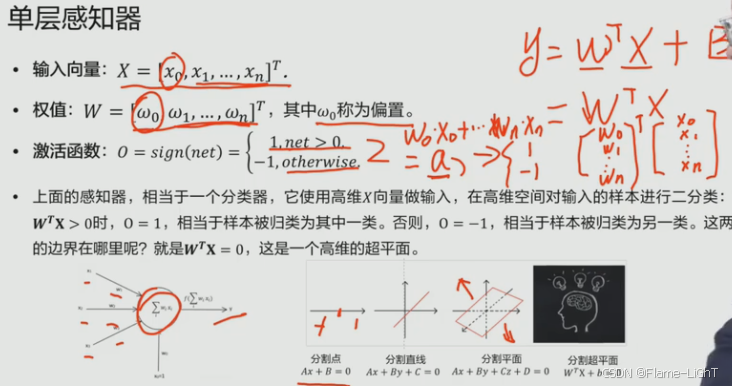 单层感知器
y = W^T X + B
• 输入向量: X = [x₀, x₁, …, xₙ]^T.
• 权值: W = [ω₀, ω₁, …, ωₙ]^T, 其中ω₀称为偏置。
= W^T X
• 激活函数: O = sign(net) = { 1, net > 0,
-1, otherwise,
w₀·x₀+···wₙ·xₙ
= a → { 1
-1
[w₀ w₁ ⋮ wₙ]^T [x₀ x₁ ⋮ xₙ]
• 上面的感知器，相当于一个分类器，它使用高维X向量做输入，在高维空间对输入的样本进行二分类:
W^T X > 0时，O = 1，相当于样本被归类为其中一类。否则，O = −1，相当于样本被归类为另一类。这两
的边界在哪里呢？就是W^T X = 0，这是一个高维的超平面。
分割点 分割直线 分割平面 分割超平面
Ax + B = 0 Ax + By + C = 0 Ax + By + Cz + D = 0 W^T X + b = 0
CSDN @Flame-LighT